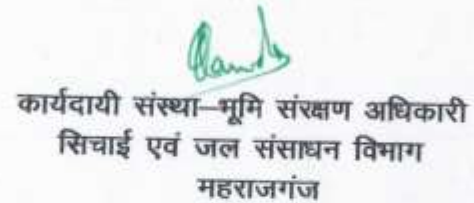 कार्यदायी संस्था–भूमि संरक्षण अधिकारी
सिचाई एवं जल संसाधन विभाग
महराजगंज